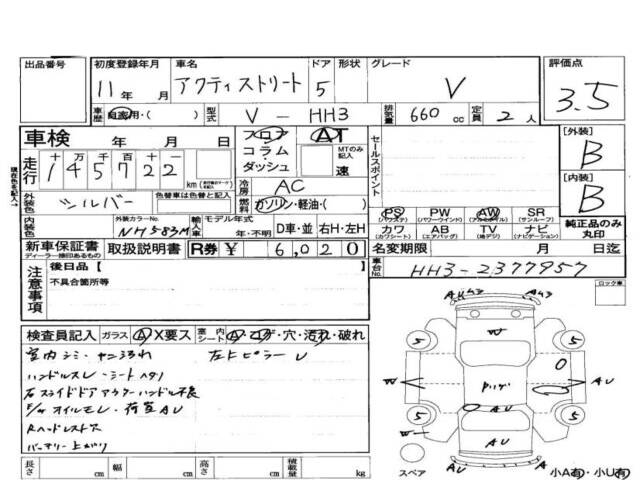 出品番号 初度登録年月 車名 ドア 形状 グレード 評価点
11年 月 アクティストリート 5 V 3.5
車歴 自家用・( ) 型式 V-HH3 排気量 660cc 定員 2人
車検 年 月 日 フロア コラム・ダッシュ AT MTのみ記入 速 セールスポイント [外装] B
走行 十万 千百十一 145722 km 冷房 AC [内装] B
外装色 シルバー 色替車は色替と記入 燃料 ガソリン・軽油・( ) PS PW AW SR
(パワステ) (パワーウインド) (アルミホイル) (サンルーフ)
内装色 外装カラーNo. NH583M 輸入車 モデル年式 年・不明 D車・並 右H・左H カワ AB TV ナビ 純正品のみ丸印
(カワシート) (エアバッグ) (地デジ) (ナビゲーション)
新車保証書 取扱説明書 R券 ¥ 6,020 名変期限 月 日迄
ディーラー捺印あるもの
注意事項 後日品【 】 車台No. HH3-2377957
不具合箇所等 ロック車
検査員記入 ガラス A X要ス 室内シート A・ス・コゲ・穴・汚れ・破れ
室内シミ・ヤニよごれ 左Fピラー U
ハンドルスレ・シートヘタリ
右スライドドアアウターハンドル不良
E/M オイルモレ・荷室AU
Rヘッドレスト欠
バッテリー上がり
AU3 AU3
W
5 5
W AU AU
5 5
W AU
AU AU
スペア 小A有・小U有
長さ cm 幅 cm 高さ cm 積載量 kg